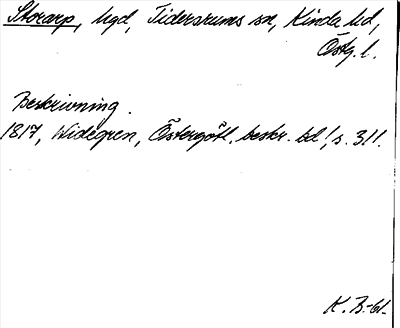 Storarp, hgd, Tidersrums sn, Kinda hd,
Östg. l.
Beskrivning.
1817, Widegren, Östergötl. beskr. bd 1, s. 311.
K. B.-61.